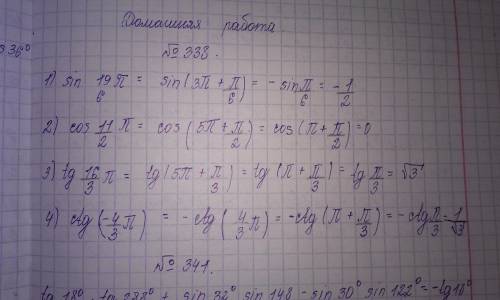 Домашняя работа.
536°
№ 338.
1) sin 19/6 π = sin(3π + π/6) = - sin π/6 = - 1/2
2) cos 11/2 π = cos(5π + π/2) = cos(π + π/2) = 0
3) tg 16/3 π = tg(5π + π/3) = tg(π + π/3) = tg π/3 = √3
4) ctg(-4/3 π) = - ctg(4/3 π) = - ctg(π + π/3) = - ctg π/3 = 1/√3
№ 341.
tg 18° · tg 288° + sin 32° sin 148 - sin 30° sin 122° = - tg 18°